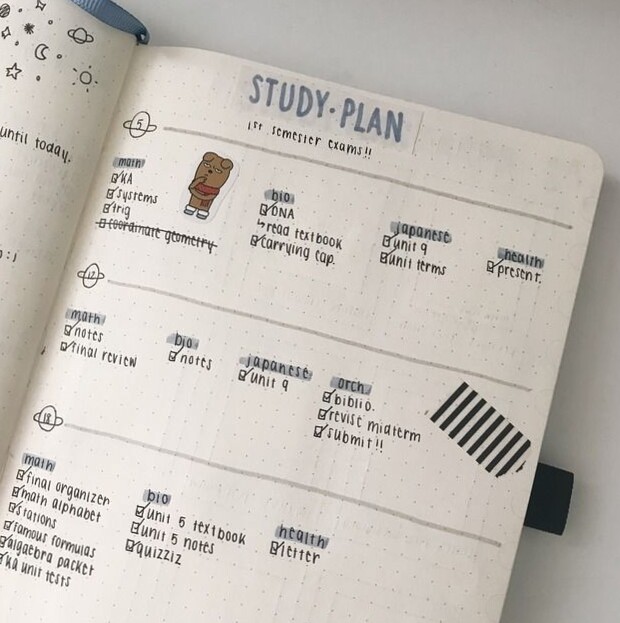 until today.
STUDY·PLAN
1st semester exams!!
5
math
KA
systems
trig
coordinate geometry
bio
DNA
↳read textbook
carrying cap.
japanese
unit 9
unit terms
health
present.
12
math
notes
final review
bio
notes
japanese
unit 9
orch.
biblio.
revise midterm
submit!!
18
math
final organizer
math alphabet
stations
famous formulas
algaebra packet
KA unit tests
bio
unit 5 textbook
unit 5 notes
quizziz
health
letter